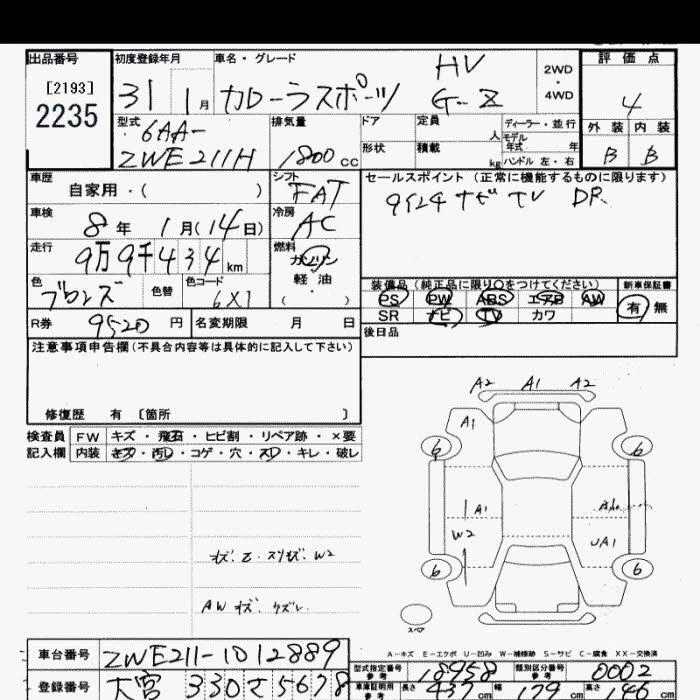 出品番号 初度登録年月 車名・グレード 評価点
[2193]
2235
31 1月 カローラスポーツ HV G-Z 2WD・4WD 4
型式 排気量 ドア 定員 人 ディーラー・並行 外装 内装
6AA-
ZWE211H 1800cc 形状 積載 kg モデル年式 年 ハンドル 左・右 B B
車歴 シフト セールスポイント(正常に機能するものに限ります)
自家用・( ) FAT ナビ TV DR
車検 冷房
8年 1月(14日) AC
走行 燃料
9万9千434km ガソリン
軽油
( )
色 ブロンズ 色替 色コード 6X1
装備品(純正品に限り○をつけてください) 新車保証書
PS PW ABS エアB AW 有 無
SR ナビ TV カワ
R券 9520円 名変期限 月 日
後日品
注意事項申告欄(不具合内容等は具体的に記入して下さい)
修復歴 有 〔箇所 〕
A2 A1 A2
A1
検査員 FW キズ・飛石・ヒビ割・リペア跡・×要
記入欄 内装 キズ・汚レ・コゲ・穴・スレ・キレ・破レ
6 6
A1
W2 UA1
6 6
W2
AW
スペア
A-キズ E-エクボ U-凹み W-補修跡 S-サビ C-腐食 XX-交換済
車台番号 ZWE211-1012889
型式指定番号 参考 18958 類別区分番号 参考 0002
登録番号 大宮 330 さ 5678
車庫証明用 参考 長さ 437 cm 幅 179 cm 高さ